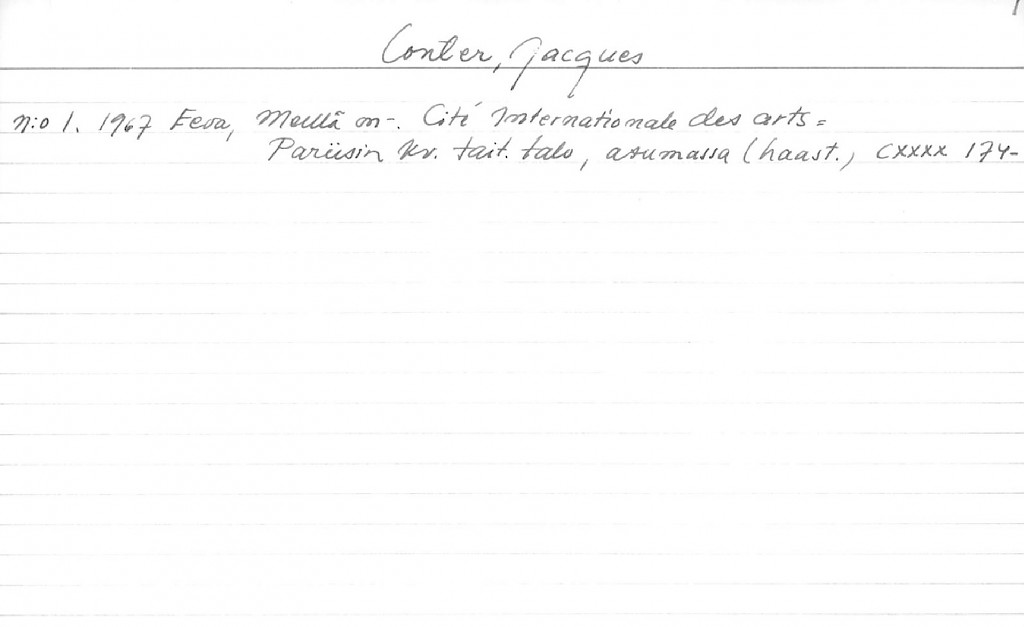 1
Conter, Jacques
n:o 1. 1967 Eeva, Meillä on -. Cité Internationale des arts =
Pariisin kv. tait. talo, asumassa (haast.) CXXXX 174-